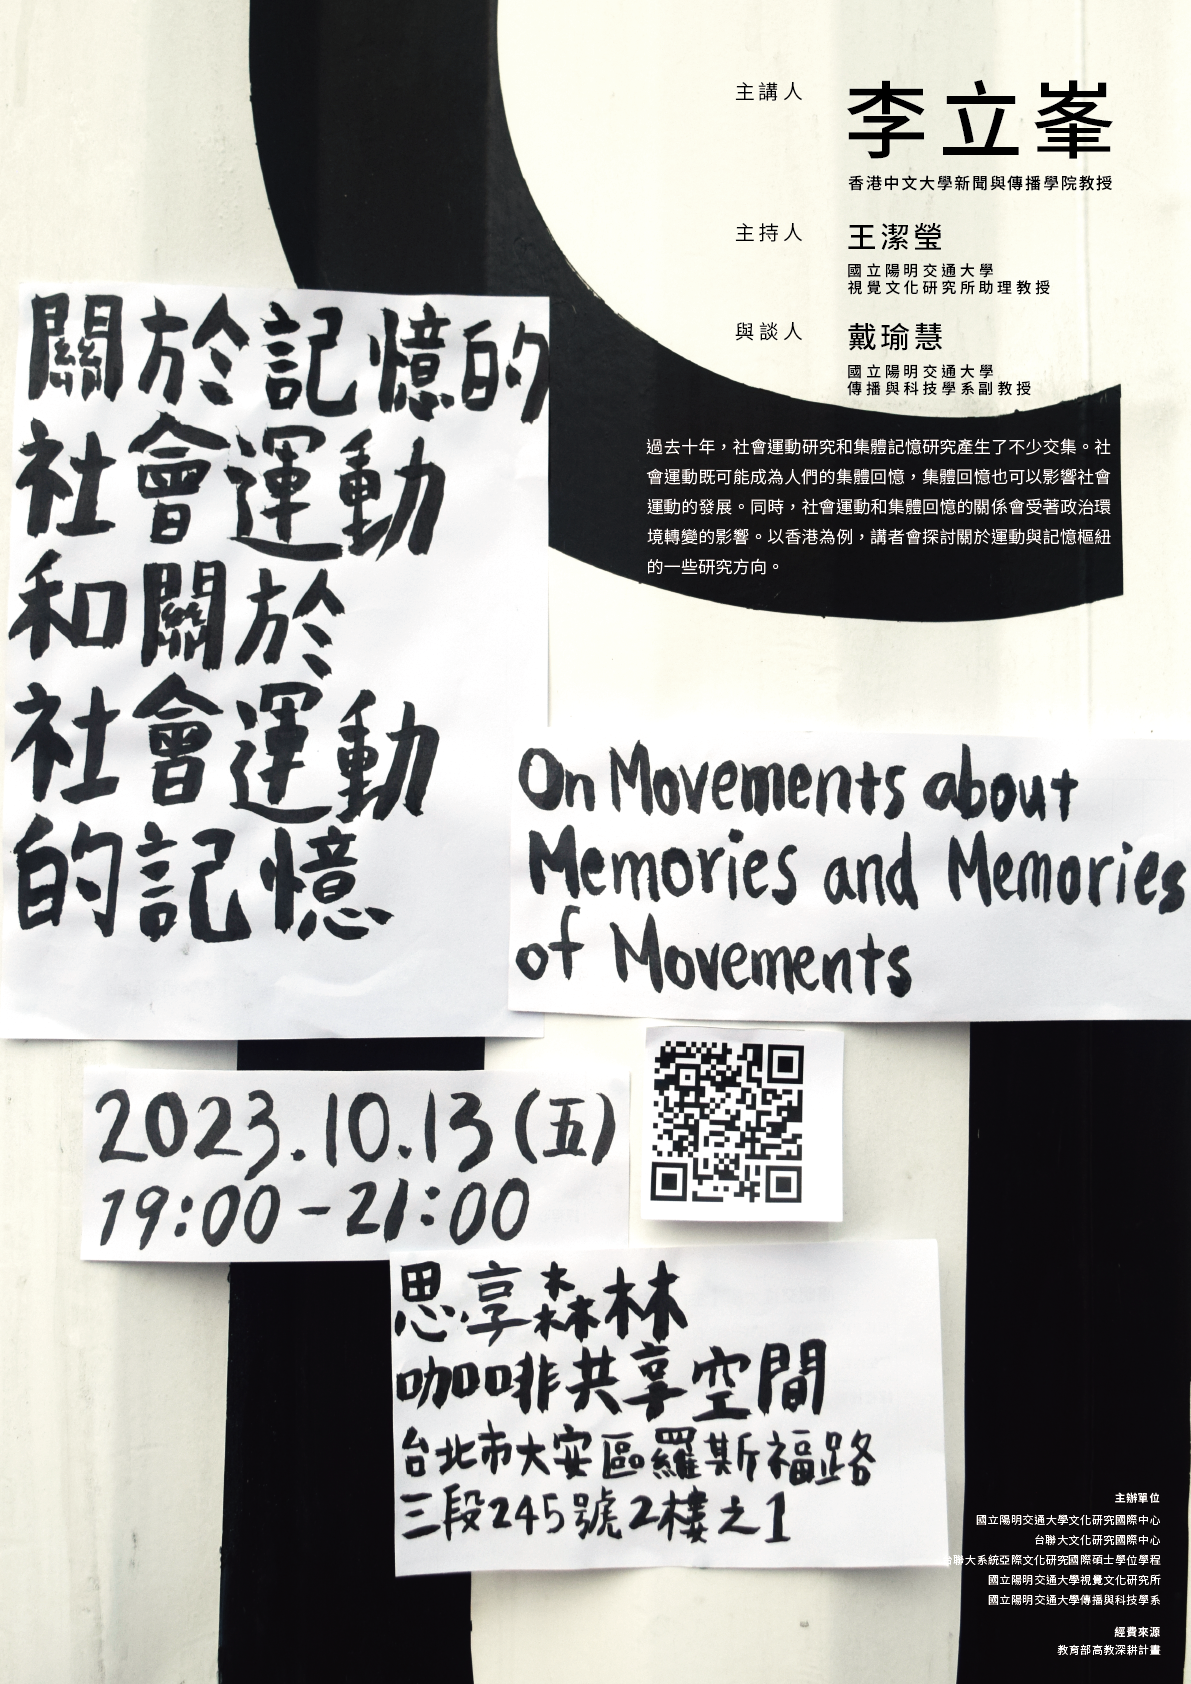 主講人
李立峯
香港中文大學新聞與傳播學院教授
主持人
王潔瑩
國立陽明交通大學
視覺文化研究所助理教授
與談人
戴瑜慧
國立陽明交通大學
傳播與科技學系副教授
過去十年，社會運動研究和集體記憶研究產生了不少交集。社
會運動既可能成為人們的集體回憶，集體回憶也可以影響社會
運動的發展。同時，社會運動和集體回憶的關係會受著政治環
境轉變的影響。以香港為例，講者會探討關於運動與記憶樞紐
的一些研究方向。
關於記憶的
社會運動
和關於
社會運動
的記憶
On Movements about
Memories and Memories
of Movements
2023.10.13 (五)
19:00-21:00
思享森林
咖啡共享空間
台北市大安區羅斯福路
三段245號2樓之1
主辦單位
國立陽明交通大學文化研究國際中心
台聯大文化研究國際中心
台聯大系統亞際文化研究國際碩士學位學程
國立陽明交通大學視覺文化研究所
國立陽明交通大學傳播與科技學系
經費來源
教育部高教深耕計畫